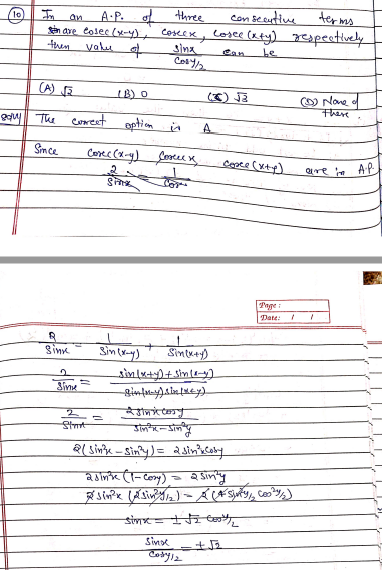 (10) In an A.P. of three consecutive terms
are cosec(x-y), cosec x, cosec(x+y) respectively
then value of sinx/cosy/2 can be
(A) √2 (B) 0 (C) √3 (D) None of
these.
Soln The correct option is A
Since cosec(x-y) cosec x, cosec(x+y) are in A.P.
2/sinx = 1/cosx
Page:
Date: / /
2/sinx = 1/sin(x-y) + 1/sin(x+y)
2/sinx = sin(x+y)+sin(x-y)/sin(x-y)sin(x+y)
2/sinx = 2sinx cosy/sin²x-sin²y
2(sin²x-sin²y) = 2sin²x cosy
2sin²x(1-cosy) = 2sin²y
2sin²x(2sin²y/2) = 2(4sin²y/2 cos²y/2)
sinx = ±√2 cosy/2
sinx/cosy/2 = ±√2